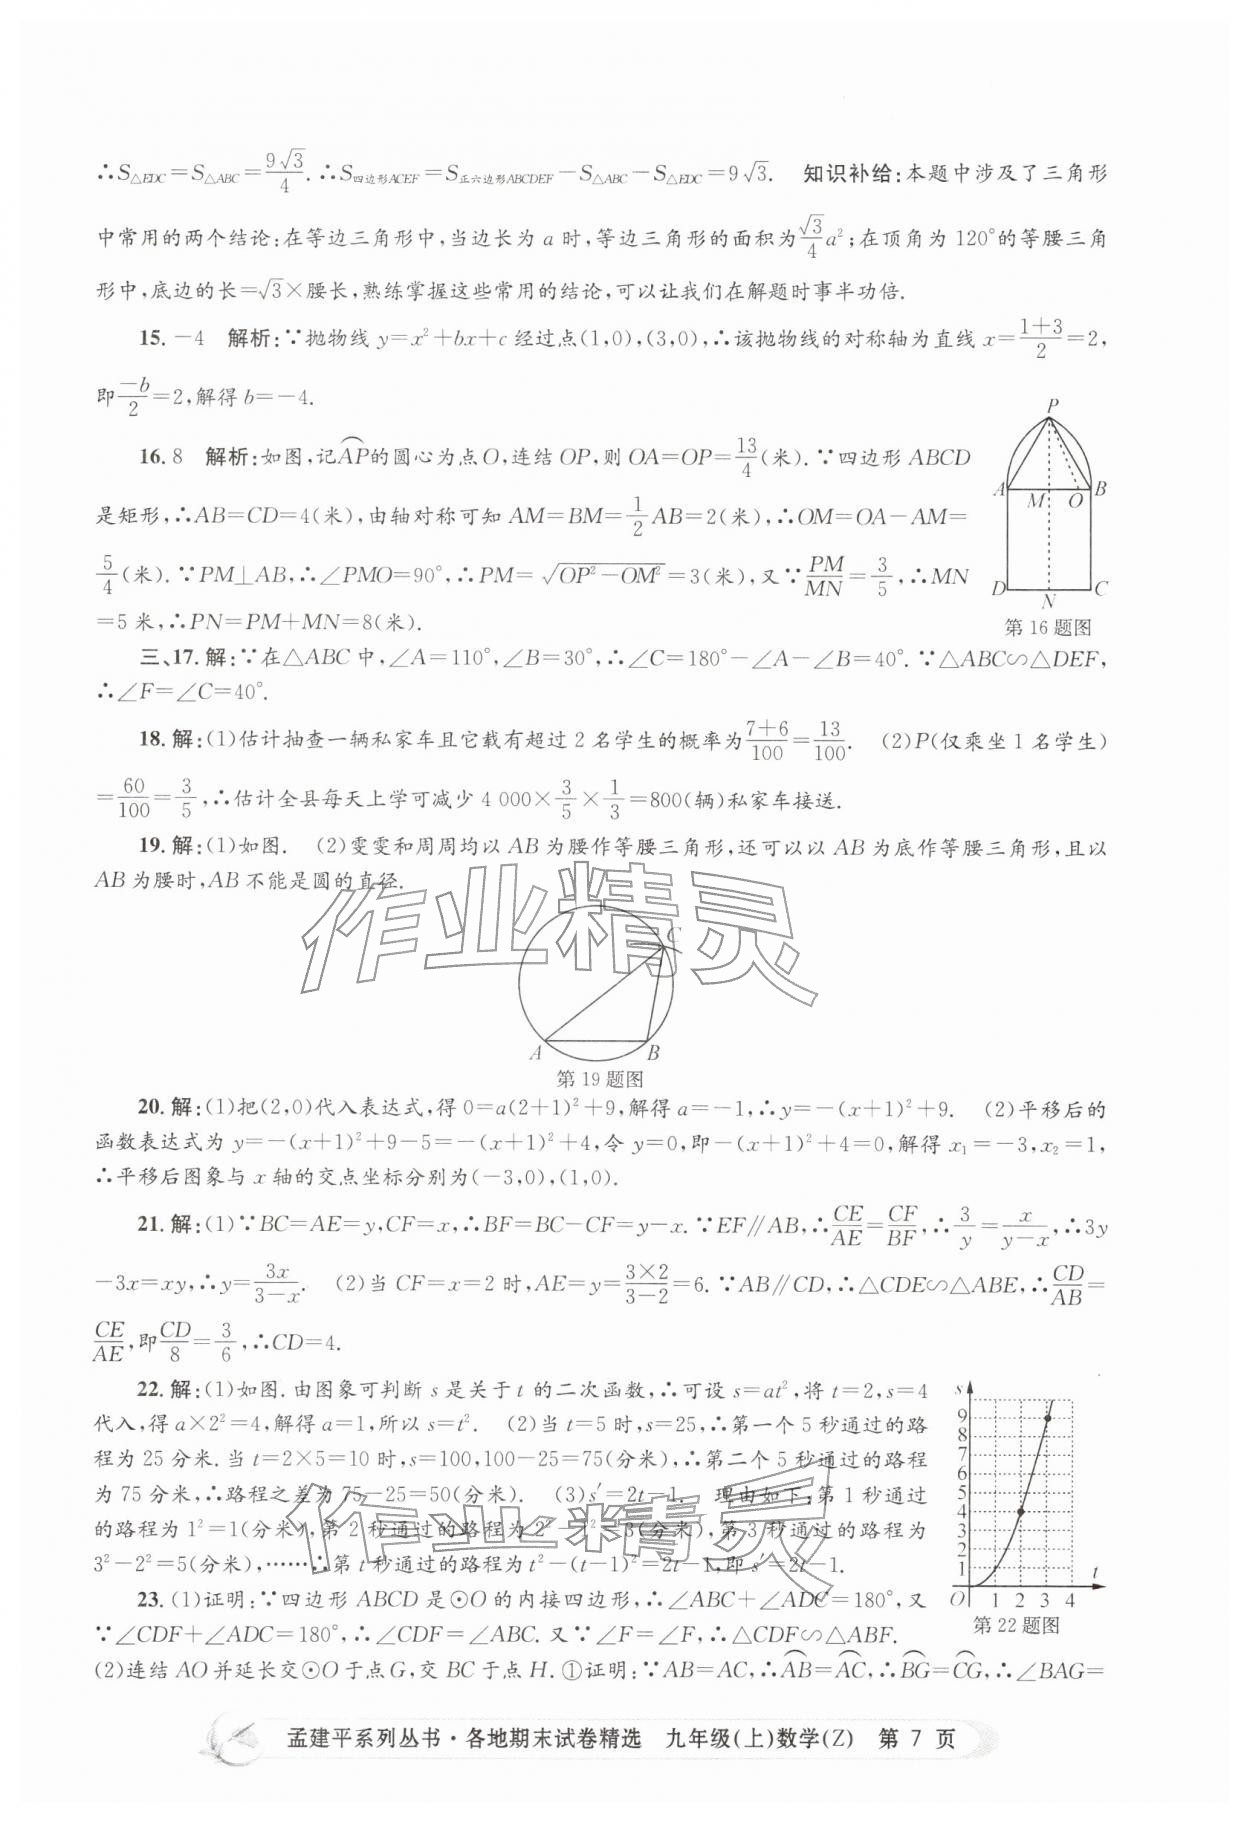 ∴S△EDC=S△ABC=9√3/4.∴S四边形ACEF=S正六边形ABCDEF-S△ABC-S△EDC=9√3. 知识补给:本题中涉及了三角形
中常用的两个结论:在等边三角形中,当边长为a时,等边三角形的面积为√3/4a²;在顶角为120°的等腰三角
形中,底边的长=√3×腰长,熟练掌握这些常用的结论,可以让我们在解题时事半功倍.
15.-4 解析:∵抛物线y=x²+bx+c经过点(1,0),(3,0),∴该抛物线的对称轴为直线x=(1+3)/2=2,
即-b/2=2,解得b=-4.
16.8 解析:如图,记⌒AP的圆心为点O,连结OP,则OA=OP=13/4(米).∵四边形ABCD
是矩形,∴AB=CD=4(米),由轴对称可知AM=BM=1/2AB=2(米),∴OM=OA-AM=
5/4(米).∵PM⊥AB,∴∠PMO=90°,∴PM=√(OP²-OM²)=3(米),又∵PM/MN=3/5,∴MN
=5米,∴PN=PM+MN=8(米).
P
A M O B
D N C
第16题图
三、17.解:∵在△ABC中,∠A=110°,∠B=30°,∴∠C=180°-∠A-∠B=40°.∵△ABC∽△DEF,
∴∠F=∠C=40°.
18.解:(1)估计抽查一辆私家车且它载有超过2名学生的概率为(7+6)/100=13/100. (2)P(仅乘坐1名学生)
=60/100=3/5,∴估计全县每天上学可减少4 000×3/5×1/3=800(辆)私家车接送.
19.解:(1)如图. (2)雯雯和周周均以AB为腰作等腰三角形,还可以以AB为底作等腰三角形,且以
AB为腰时,AB不能是圆的直径.
作业精灵
C
A B
第19题图
20.解:(1)把(2,0)代入表达式,得0=a(2+1)²+9,解得a=-1,∴y=-(x+1)²+9. (2)平移后的
函数表达式为y=-(x+1)²+9-5=-(x+1)²+4,令y=0,即-(x+1)²+4=0,解得x₁=-3,x₂=1,
∴平移后图象与x轴的交点坐标分别为(-3,0),(1,0).
21.解:(1)∵BC=AE=y,CF=x,∴BF=BC-CF=y-x.∵EF∥AB,∴CE/AE=CF/BF,∴3/y=x/(y-x),∴3y
-3x=xy,∴y=3x/(3-x). (2)当CF=x=2时,AE=y=(3×2)/(3-2)=6.∵AB∥CD,∴△CDE∽△ABE,∴CD/AB=
CE/AE,即CD/8=3/6,∴CD=4.
22.解:(1)如图.由图象可判断s是关于t的二次函数,∴可设s=at²,将t=2,s=4
代入,得a×2²=4,解得a=1,所以s=t². (2)当t=5时,s=25,∴第一个5秒通过的路
程为25分米.当t=2×5=10时,s=100,100-25=75(分米),∴第二个5秒通过的路程
为75分米,∴路程之差为75-25=50(分米). (3)s′=2t-1. 理由如下:第1秒通过
的路程为1²=1(分米),第2秒通过的路程为2²-1²=3(分米),第3秒通过的路程为
3²-2²=5(分米),……∴第t秒通过的路程为t²-(t-1)²=2t-1,即s′=2t-1.
作业精灵
s
9
8
7
6
5
4
3
2
1
t
O 1 2 3 4
第22题图
23.(1)证明:∵四边形ABCD是⊙O的内接四边形,∴∠ABC+∠ADC=180°,又
∵∠CDF+∠ADC=180°,∴∠CDF=∠ABC.又∵∠F=∠F,∴△CDF∽△ABF.
(2)连结AO并延长交⊙O于点G,交BC于点H.①证明:∵AB=AC,∴⌒AB=⌒AC,∴⌒BG=⌒CG,∴∠BAG=
孟建平系列丛书·各地期末试卷精选 九年级(上)数学(Z) 第7页